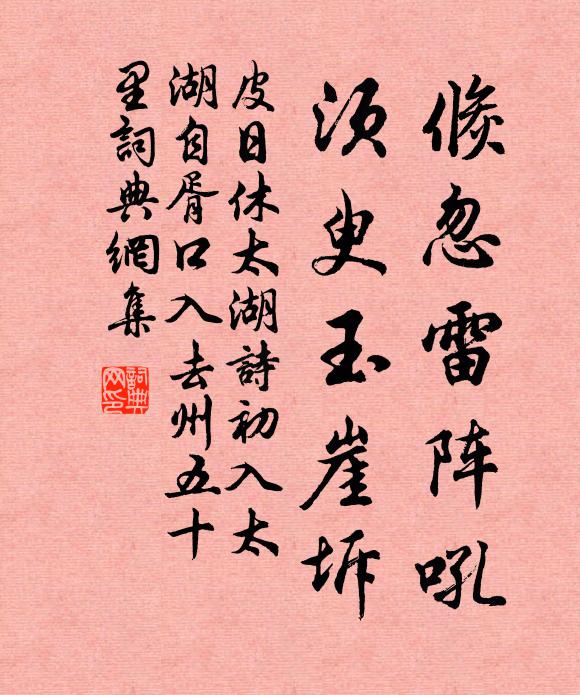 倏忽雷阵吼
须臾玉崖坼
皮日休太湖詩初入太
湖自胥口入去州五十
里詞典網集
詞典
网印